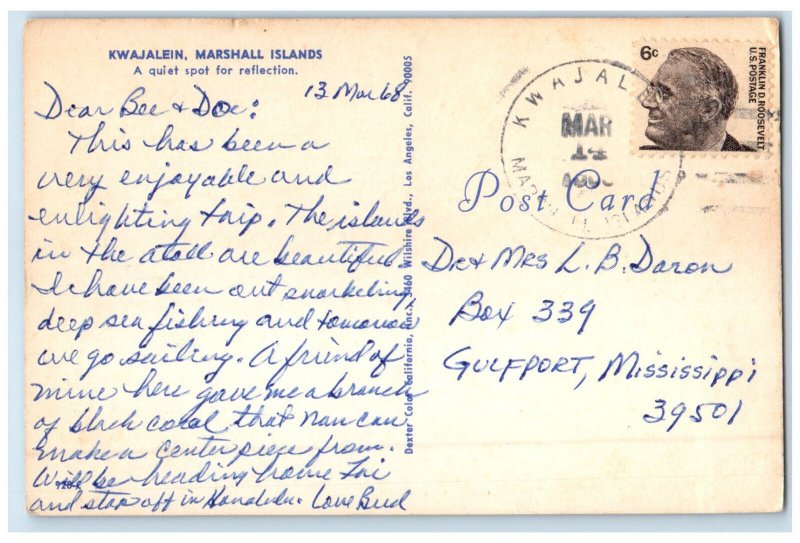 KWAJALEIN, MARSHALL ISLANDS
A quiet spot for reflection.
13 Mar 68
Dear Bee & Doc:
This has been a
very enjoyable and
enlighting trip. The islands
in the atoll are beautiful
I have been out snorkeling,
deep sea fishing and tomorrow
we go sailing. A friend of
mine here gave me a branch
of blck coral that Nan can
make a center piece from.
Will be heading home Fri
and stop off in Honolulu. Love Bud
Dexter Color California, Inc., 3460 Wilshire Blvd., Los Angeles, Calif. 90005
KWAJALE
MAR
14
ISLANDS
6c
FRANKLIN D. ROOSEVELT
U.S. POSTAGE
Post Card
Dr & Mrs L. B. Daron
Box 339
GULFPORT, Mississippi
39501